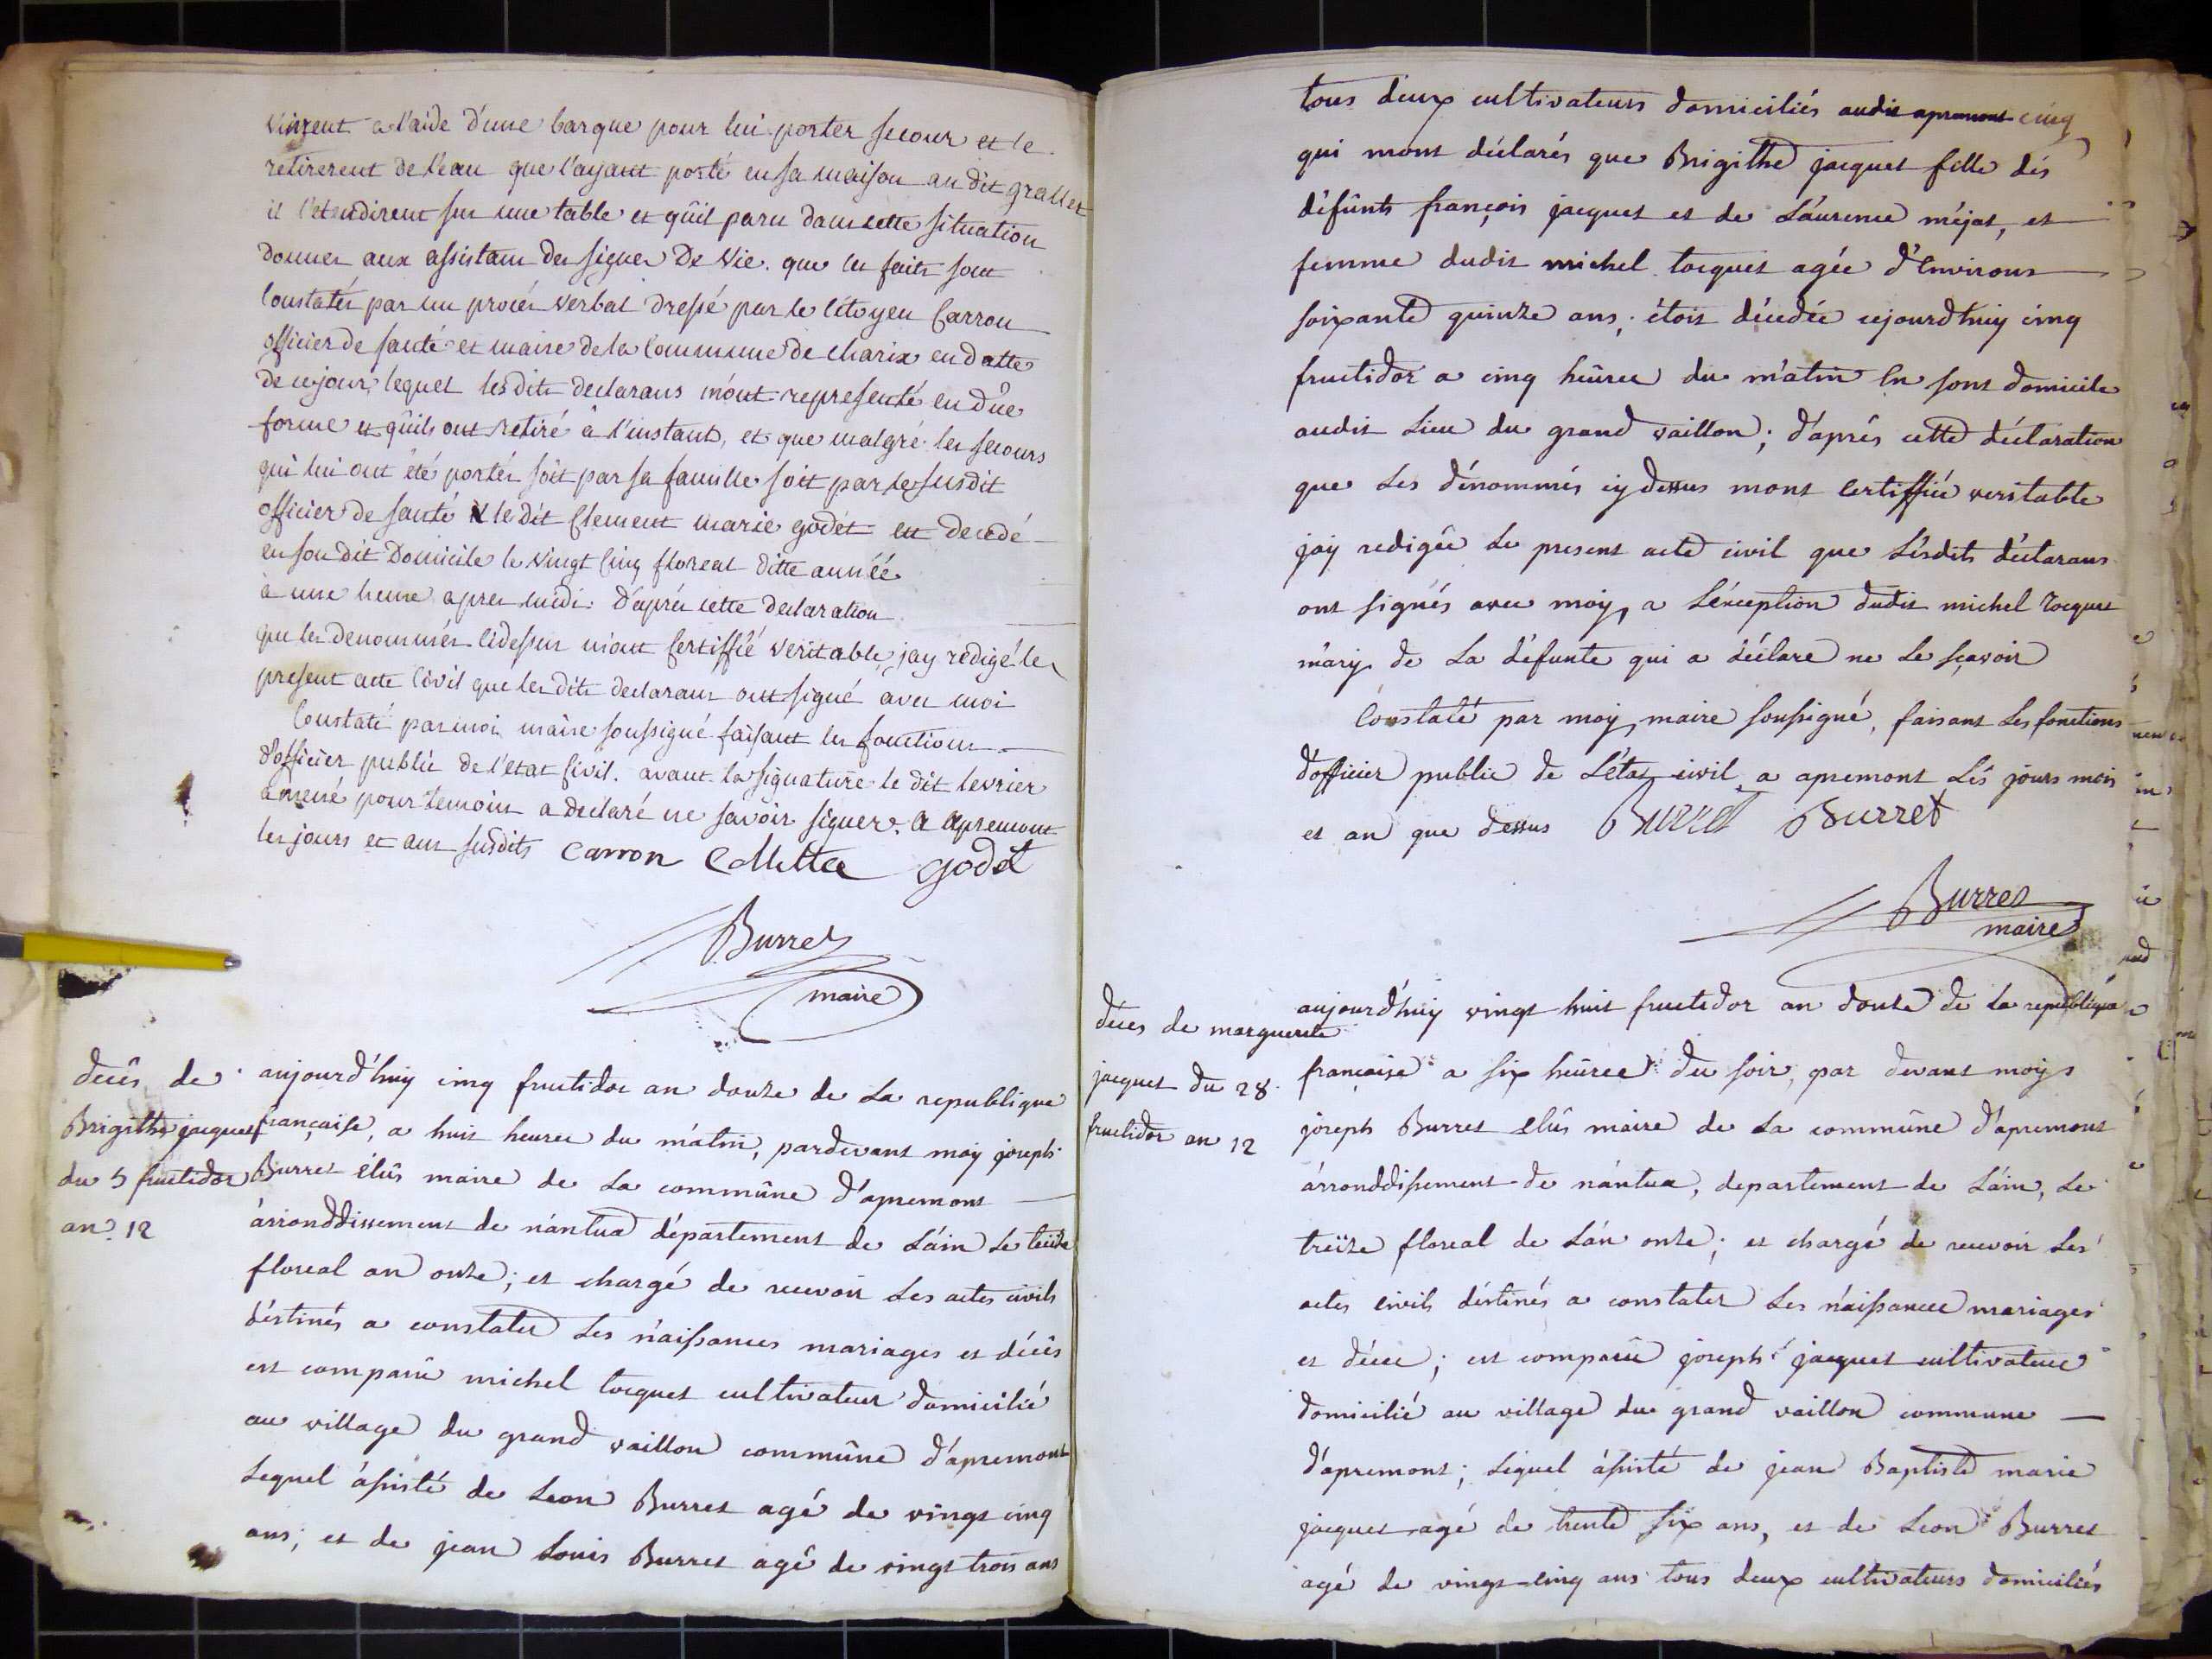 vinrent a l'aide d'une barque pour lui porter secour et le
retirerent de l'eau que l'ayant porté en sa maison au dit grallet
il l'etendirent sur une table et qûil paru dans cette situation
donner aux assistans des signes De Vie. que les faits sont
Constatés par un procés verbal dressé par le Citoyen Carron
officier de santé et maire de la Commune de charix en datte
de ce jour, lequel lesdits declarans m'ont representé en dûe
forme et qûils ont retiré à l'instant, et que malgré les secours
qui lui ont été portés soit par sa famille soit par le susdit
officier de santé le dit Clement marie godet est decedé
en son dit Domicile le vingt Cinq floreal ditte année
à une heure apres midi. D'aprés cette declaration
que les denommés Cidessus m'ont Certiffié veritable, jay redigé le
present acte Civil que les dits declarans ont signé avec moi
Constaté par moi maire soussigné faisant les fonctions
d'officier public de l'etat Civil. avant la signature le dit levrier
amené pour temoin a declaré ne savoir signer. a apremont
les jours et ans susdits Carron Collette godet
Burret
maire
decês de
Brigithe jacquet
du 5 fructidor
an 12
aujourd'huy cinq fructidor an douze de La republique
française, a huit heures du matin, pardevant moy joseph
Burret élûs maire de La commûne d'apremont
arronddissement de nantua département de L'ain Le treize
floreal an onze; et chargé de recevoir Les actes civils
destinés a constater Les naissances mariages et décês
est comparû michel tocquet cultivateur domicilié
au village du grand vaillon commûne d'apremont
Lequel assisté de Leon Burret agé de vingt cinq
ans; et de jean Louis Burret agé de vingt trois ans
tous deux cultivateurs domiciliés audit apremont cinq
qui mont déclarés que Brigithe jacquet fille dés
défûnts françois jacquet et de Laurence méjat, et
femme dudit michel tocquet agée d'Environs
soixante quinze ans; étoit décedée cejourdhuy cinq
fructidor a cinq heûres du matin En sont domicile
audit Lieu du grand vaillon; d'aprés cette déclaration
que Les dénommés cy dessus mont Certiffiée veritable
jay redigée Le present acte civil que Lésdits déclarans
ont signés avec moy, a Léxception dudit michel Tocquet
mary de La défunte qui a déclare ne Le sçavoir
Constaté par moy, maire soussigné, faisant Les fonctions
d'officier public de L'état civil a apremont Lés jours mois
et an que dessus Burret Burret
Burret
maire
déces de marguerite
jacquet du 28
fructidor an 12
aujourd'huy vingt huit fructidor an douze de La republique
française a six heûres du soir, par devant moy
joseph Burret elûs maire de La commûne d'apremont
arronddissement de nantua, departement de L'ain, Le
treize floreal de L'an onze; et chargé de recevoir Les
actes civils déstinés a constater Les naissances mariages
et déces; est comparû joseph jacquet cultivateur
domicilié au village du grand vaillon commune
d'apremont; Lequel assisté de jean Baptiste marie
jacquet agé de trente six ans, et de Leon Burret
agé de vingt-cinq ans tous deux cultivateurs domiciliés